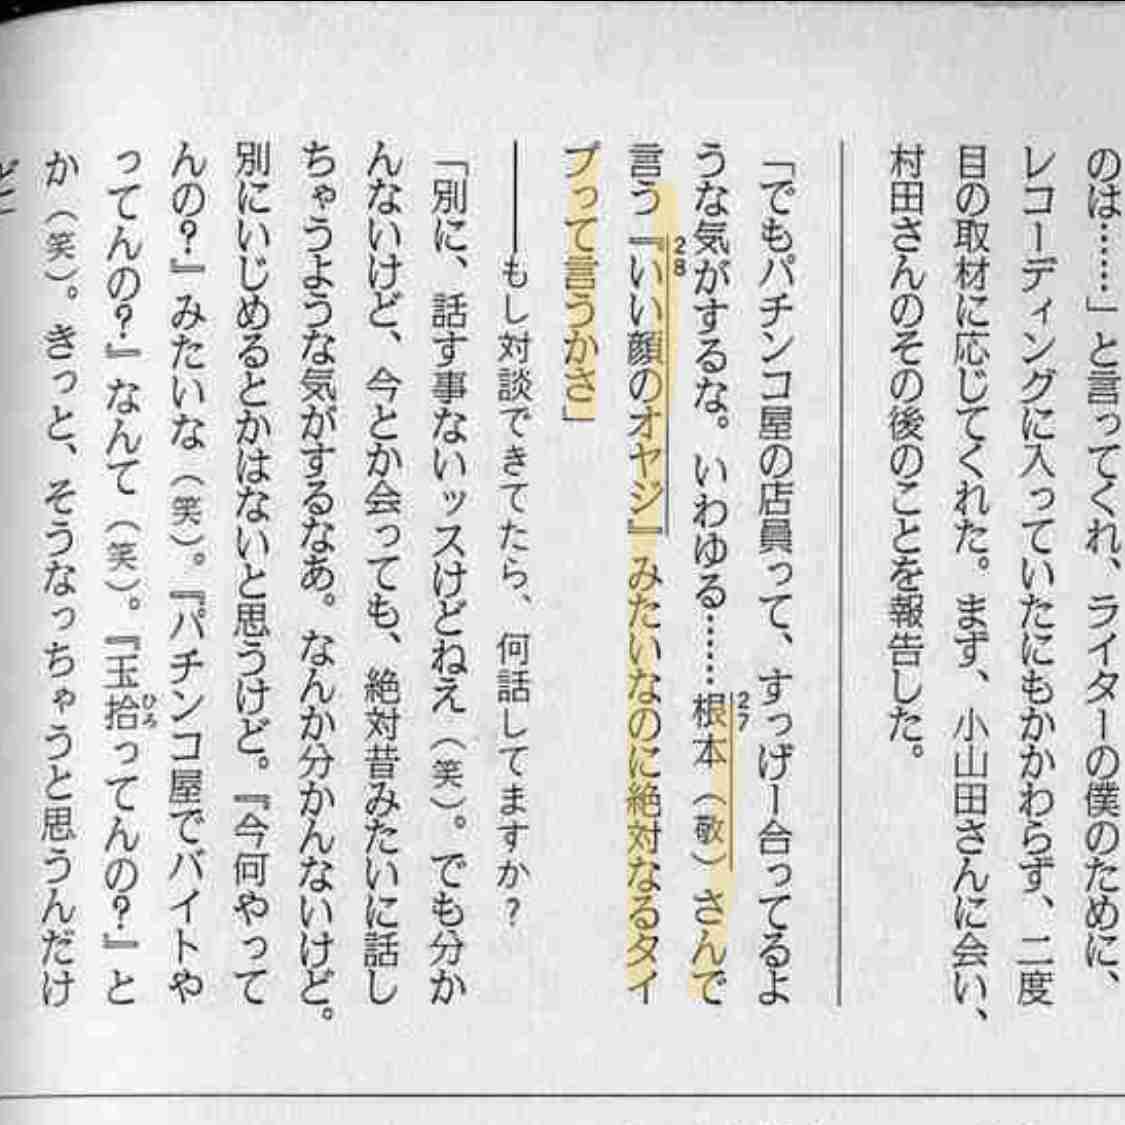 のは……」と言ってくれ、ライターの僕のために、
レコーディングに入っていたにもかかわらず、二度
目の取材に応じてくれた。まず、小山田さんに会い、
村田さんのその後のことを報告した。
「でもパチンコ屋の店員って、すっげー合ってるよ
うな気がするな。いわゆる……根本（敬）さんで
27
言う『いい顔のオヤジ』みたいなのに絶対なるタイ
28
プって言うかさ」
――もし対談できてたら、何話してますか？
「別に、話す事ないッスけどねえ（笑）。でも分か
んないけど、今とか会っても、絶対昔みたいに話し
ちゃうような気がするなあ。なんか分かんないけど。
別にいじめるとかはないと思うけど。『今何やって
んの？』みたいな（笑）。『パチンコ屋でバイトや
ってんの？』なんて（笑）。『玉拾ってんの？』と
ひろ
か（笑）。きっと、そうなっちゃうと思うんだけ
ど